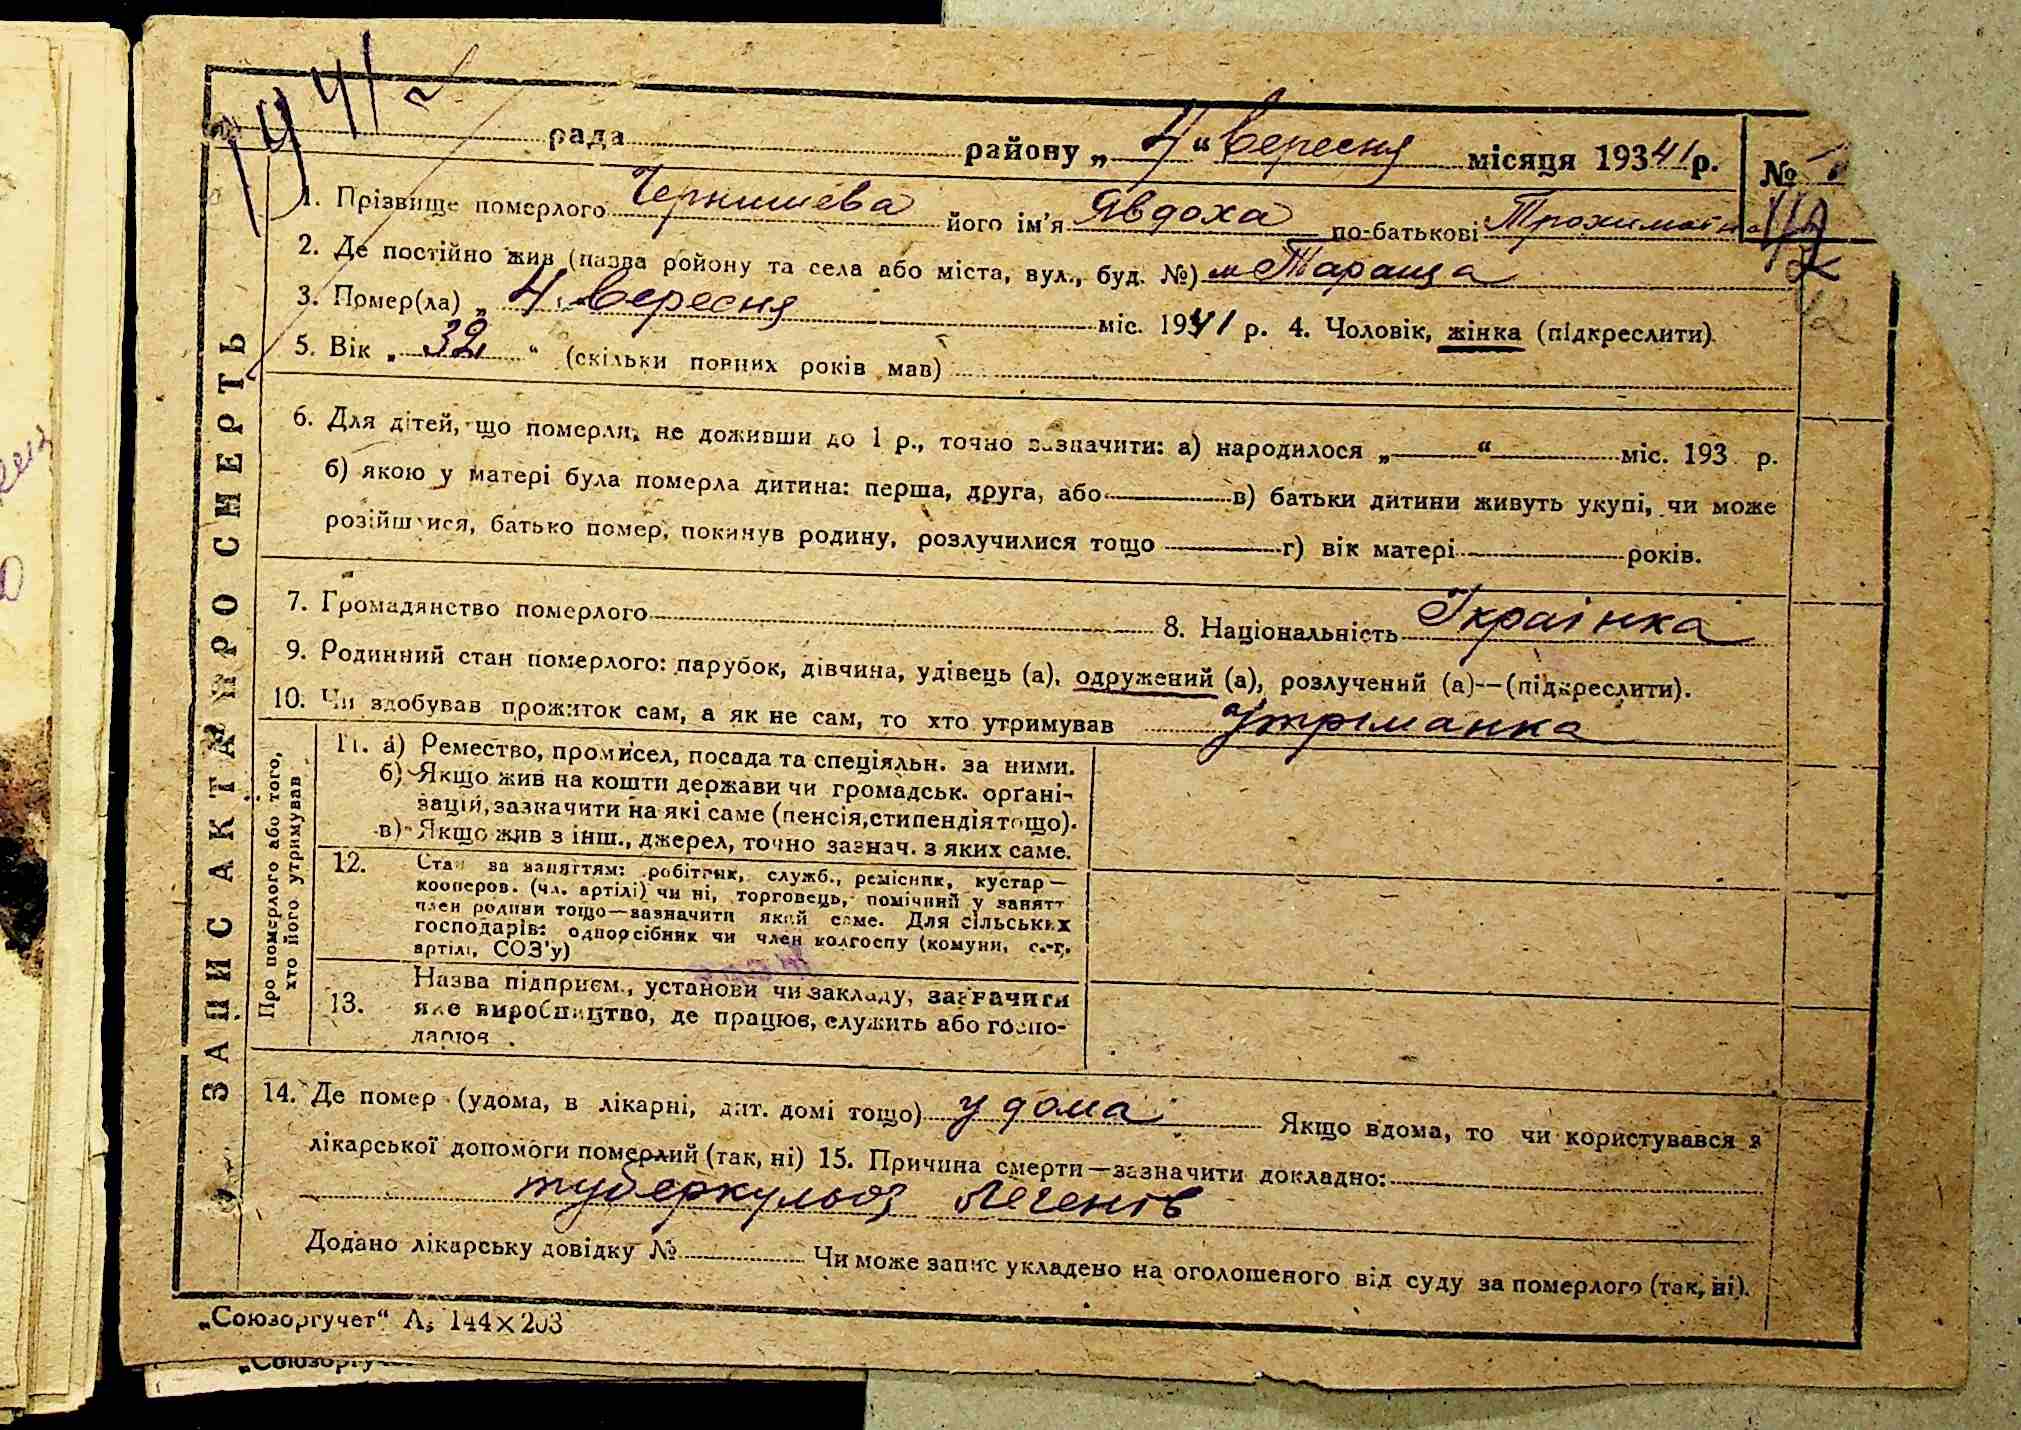 1941
рада району „ 4 “ вересня місяця 193 41 р. №
1. Прізвище померлого Чернишева його ім'я Явдоха по-батькові Трохимовна
2. Де постійно жив (назва ройону та села або міста, вул., буд. №) м Тараща
3. Помер(ла) „ 4 “ вересня міс. 1941 р. 4. Чоловік, жінка (підкреслити).
42
5. Вік „ 32 “ (скільки повних років мав)
6. Для дітей, що померли, не доживши до 1 р., точно зазначити: а) народилося „ “ міс. 193 р.
б) якою у матері була померла дитина: перша, друга, або в) батьки дитини живуть укупі, чи може
розійшлися, батько помер, покинув родину, розлучилися тощо г) вік матері років.
7. Громадянство померлого 8. Національність Українка
9. Родинний стан померлого: парубок, дівчина, удівець (а), одружений (а), розлучений (а)—(підкреслити).
10. Чи здобував прожиток сам, а як не сам, то хто утримував утріманка
ЗАПИС АКТА ПРО СМЕРТЬ
Про померлого або того,
хто його утримував
11. а) Ремество, промисел, посада та спеціяльн. за ними.
б) Якщо жив на кошти держави чи громадськ. органі-
зацій, зазначити на які саме (пенсія, стипендія тощо).
в) Якщо жив з інш., джерел, точно зазнач. з яких саме.
12. Стан за заняттям: робітник, служб., ремісник, кустар—
кооперов. (чл. артілі) чи ні, торговець, помічний у занятт
член родини тощо—зазначити який саме. Для сільських
господарів: одноосібник чи член колгоспу (комуни, с.-г.
артілі, СОЗ'у)
13. Назва підприєм., установи чи закладу, зазначити
яке виробництво, де працює, служить або госпо-
дарює
14. Де помер (удома, в лікарні, дит. домі тощо) у дома Якщо вдома, то чи користувався з
лікарської допомоги померлий (так, ні) 15. Причина смерти—зазначити докладно:
туберкульоз легенів
Додано лікарську довідку № Чи може запис укладено на оголошеного від суду за померлого (так, ні).
„Союзоргучет“ А5 144×203
„Союзоргуч